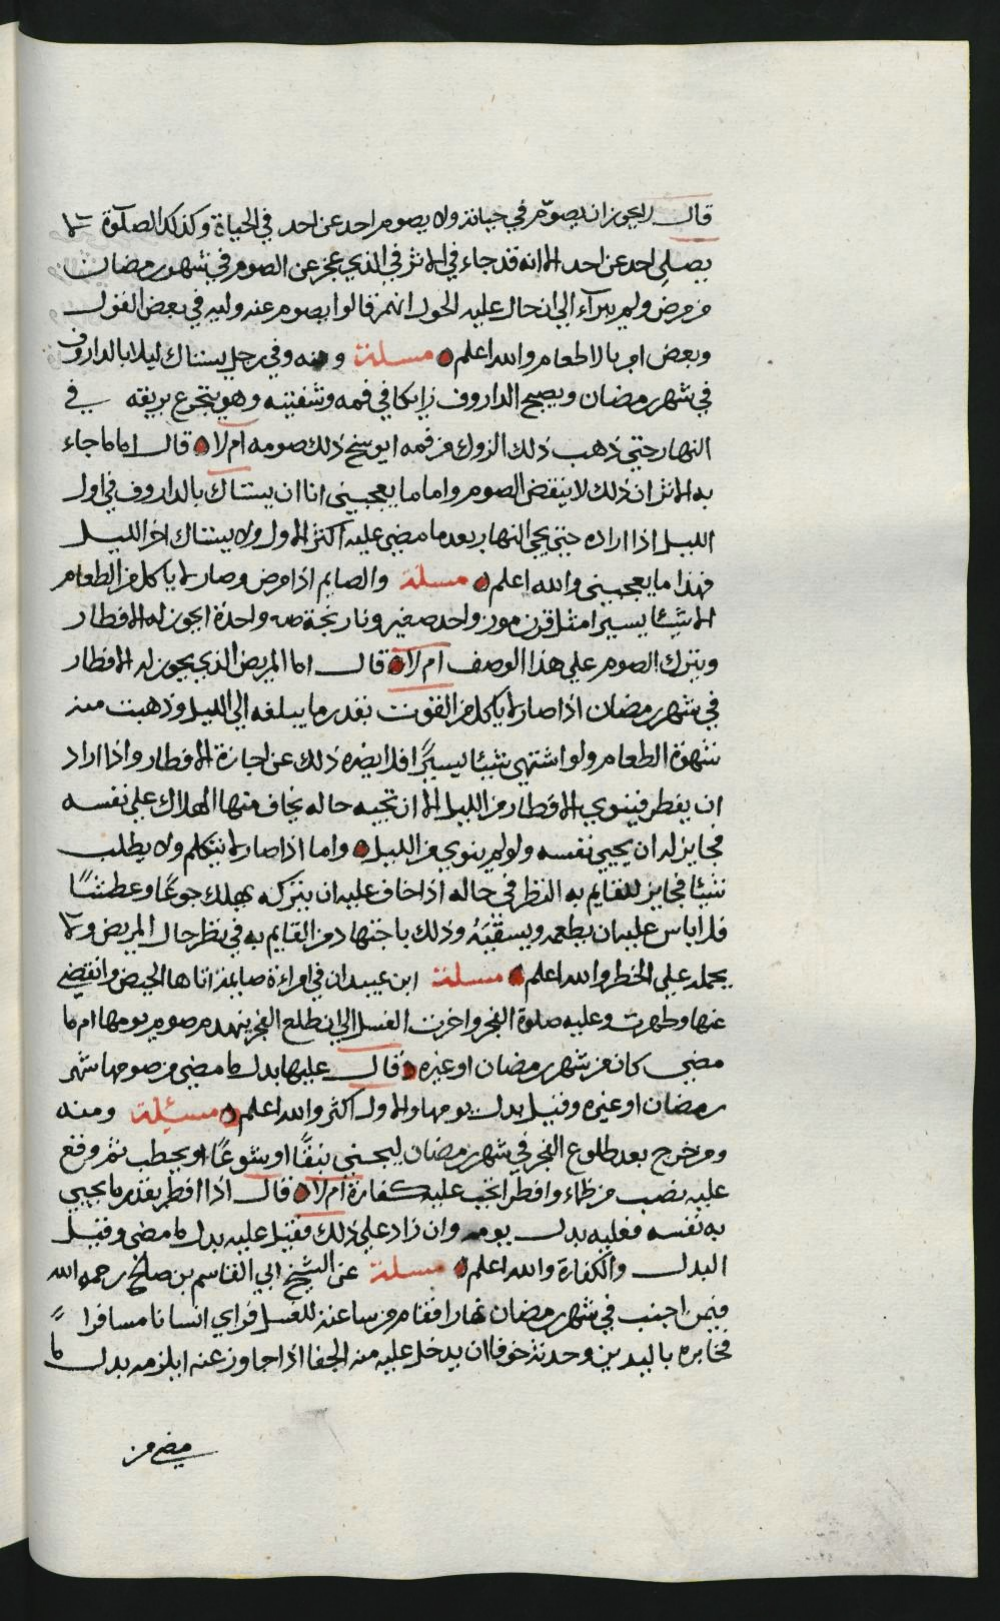 قال لايجوز ان يصوم في حياته ولا يصوم احد عن احد في الحياة وكذلك الصلوة لا
يصلي احد عن احد الا انه قد جاء في الاثر في الذي عجز عن الصوم في شهر رمضان
من مرض ولم يبرآء الي ان حال عليه الحول انهم قالوا يصوم عنه وليه في بعض القول
وبعض امر بالاطعام والله اعلم مسئلة ومنه وفي رجل يستاك ليلا بالداروف
في شهر رمضان ويصبح الداروف زايكا في فمه وشفتيه وهو يتجرع بريقه في
النهار حتي ذهب ذلك الزوك من فمه ايوسخ ذلك صومه ام لا قال اما ما جاء
به الاثر ان ذلك لا ينقض الصوم واما ما يعجبني انا ان يستاك بالداروف في اول
الليل اذا اراده حتي يجي النهار بعد ما مضي عليه اكثر الاول ولا يستاك اخر الليل
فهذا ما يعجبني والله اعلم مسئلة والصايم اذا مرض وصار لا ياكل من الطعام
الا شيئا يسيرا مثل قرن موز واحد صغير ونارنجة واحدة ايجوز له الافطار
ويترك الصوم علي هذا الوصف ام لا قال اما المريض الذي يجوز له الافطار
في شهر رمضان اذا صار لا ياكل من القوت بقدر ما يبلغه الي الليل وذهبت منه
شهوة الطعام ولو اشتهي شيئا يسيرًا فلا يضره ذلك عن اجازة الافطار واذا اراد
ان يفطر فينوي الافطار من الليل الا ان تجيه حاله يخاف منها الهلاك علي نفسه
فجايز له ان يحيي نفسه ولو لم ينوي من الليل واما اذا صار لا يتكلم ولا يطلب
شيئا فجايز للقايم به النظر في حاله اذا خاف عليه ان يتركه يهلك جوعًا وعطشًا
فلا باس عليه ان يطعمه ويسقيَهُ وذلك باجتهاد من القايم به في نظر حال المريض ولا
يحمله علي الخطر والله اعلم مسئلة ابن عبيدان في امراءة صايمة اتاها الحيض وانقضي
عنها وطهرت وعليها صلوة الفجر واخرت الغسل الي ان طلع الفجر ينهدم صوم يومها ام ما
مضي كان من شهر رمضان او غيره قال عليها بدل ما مضي من صومها شهر
رمضان او غيره وقيل بدل يومها والاول اكثر والله اعلم مسئلة ومنه
ومن خرج بعد طلوع الفجر في شهر رمضان ليجني نبقًا او شوعًا او يحطب ثم وقع
عليه نصب من ظماء وافطر اتجب عليه كفارة ام لا قال اذا افطر بقدر ما يحيي
به نفسه فعليه بدل يومه وان زاد علي ذلك فقيل عليه بدل ما مضي وقيل
البدل والكفارة والله اعلم مسئلة عن الشيخ ابي القاسم بن صالح رحمه الله
فيمن اجنب في شهر رمضان نهارا فقام من ساعته للغسل فراي انسانا مسافرا
فخابره باليدين وحدثه خوفا ان يدخل عليه منه الجفا اذا جاوز عنه ايلزمه بدل ما
مضي من